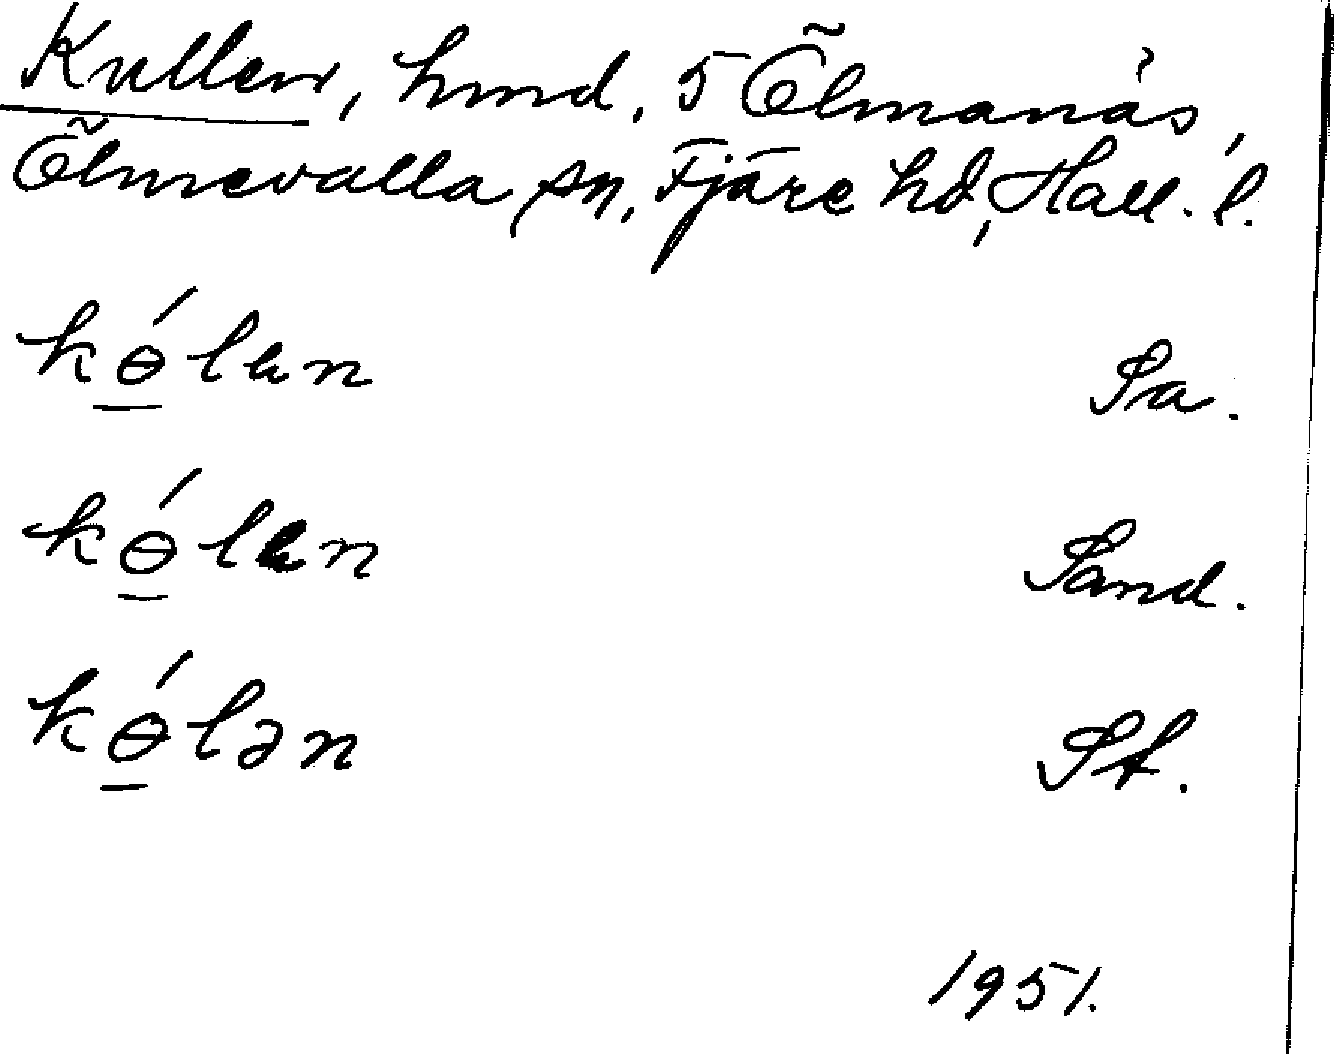 Kullen, hmd, 5 Ölmanäs,
Ölmevalla sn, Fjäre hd, Hall. l.
kө́len Sa.
kө́len Sand.
kө́lən St.
1951.